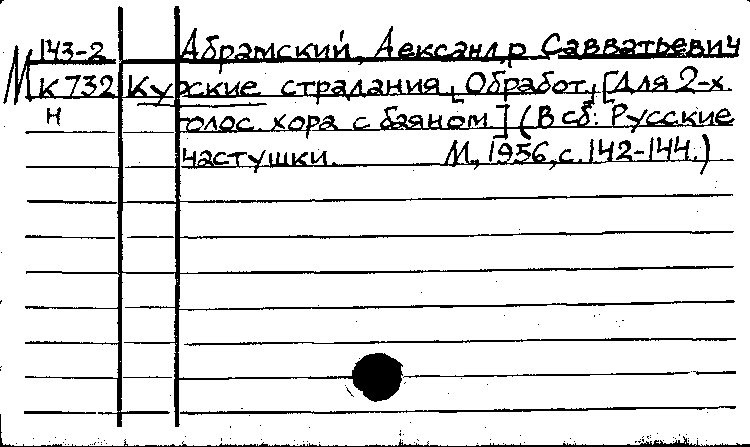 143-2 Абрамский, Аександр Савватьевич
М К 732 Курские страдания, Обработ, [Для 2-х
Н голос. хора с баяном] (В сб: Русские
частушки. М, 1956, с. 142-144.)